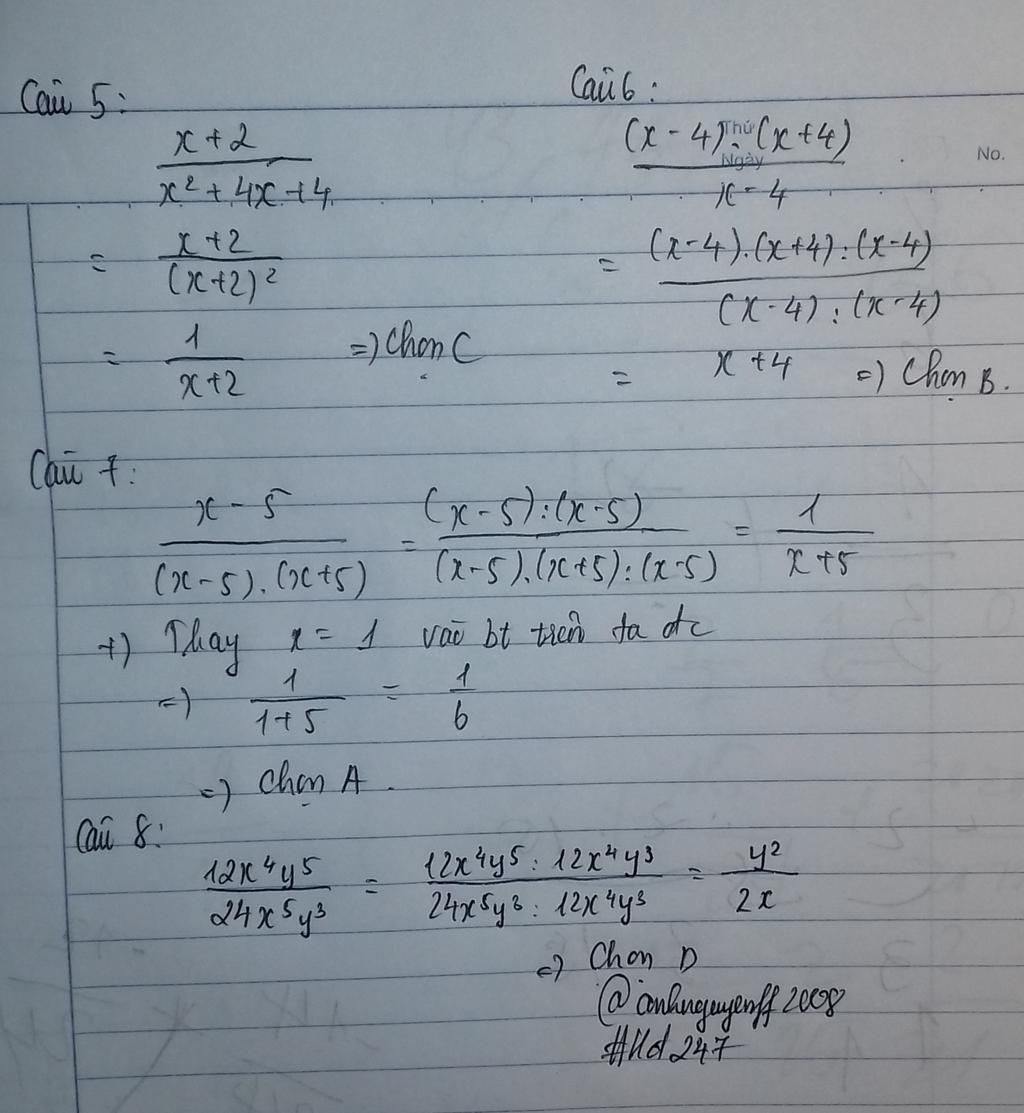 Câu 5:
x + 2 / x² + 4x + 4
= x + 2 / (x+2)²
= 1 / x+2 => Chọn C
Câu 6:
Thứ
Ngày
No.
(x - 4).(x + 4) / x - 4
= (x-4).(x+4):(x-4) / (x-4):(x-4)
= x + 4 => Chọn B.
Câu 7:
x - 5 / (x-5).(x+5) = (x-5):(x-5) / (x-5).(x+5):(x-5) = 1 / x+5
+) Thay x = 1 vào bt trên ta đc
=) 1 / 1+5 = 1 / 6
=) Chọn A.
Câu 8:
12x⁴y⁵ / 24x⁵y³ = 12x⁴y⁵ : 12x⁴y³ / 24x⁵y³ : 12x⁴y³ = y² / 2x
=) Chọn D
@anhnguyenff2008
#Hd247